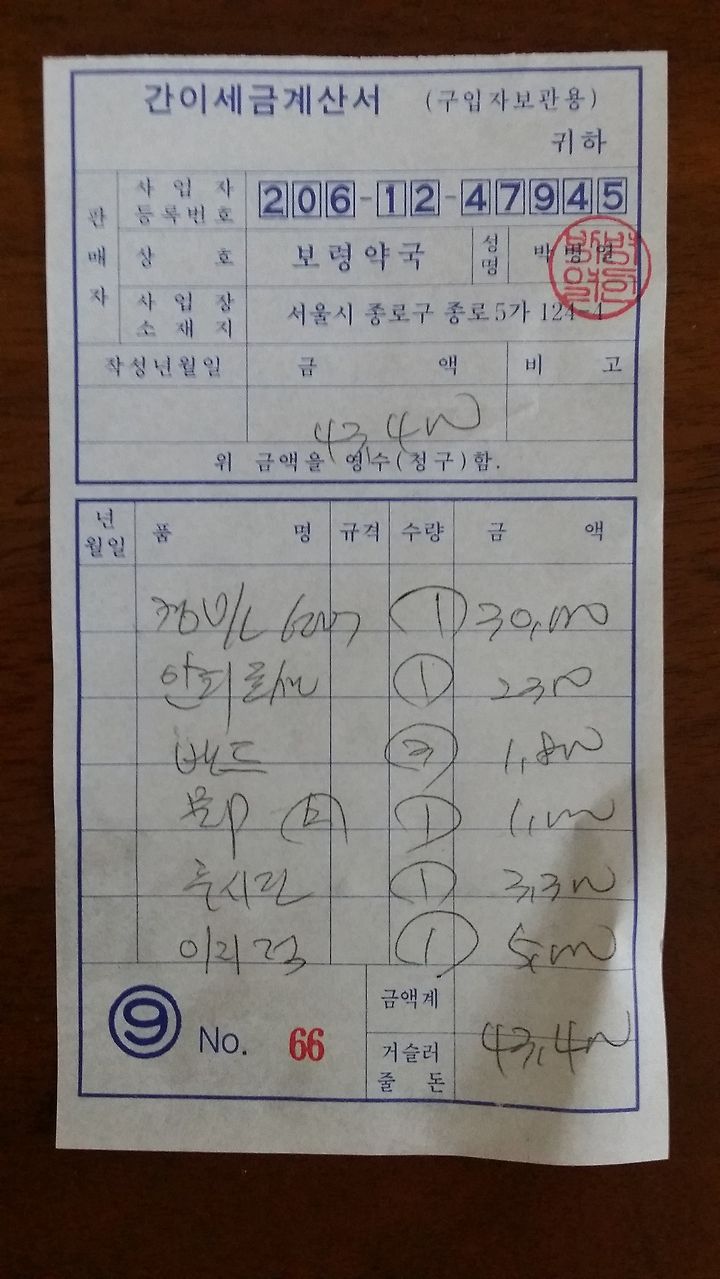 간이세금계산서 (구입자보관용)
귀하
판매자
사업자등록번호 206-12-47945
상호 보령약국 성명 박병열
사업장소재지 서울시 종로구 종로5가 124-4
작성년월일 금액 비고
43,400
위 금액을 영수(청구)함.
년월일 품명 규격 수량 금액
① 30,000
안티푸라민 ① 2300
밴드 ③ 1,800
① 1,000
투시란 ① 3,300
① 5,000
⑨ No. 66
금액계
거슬러줄돈
43,400